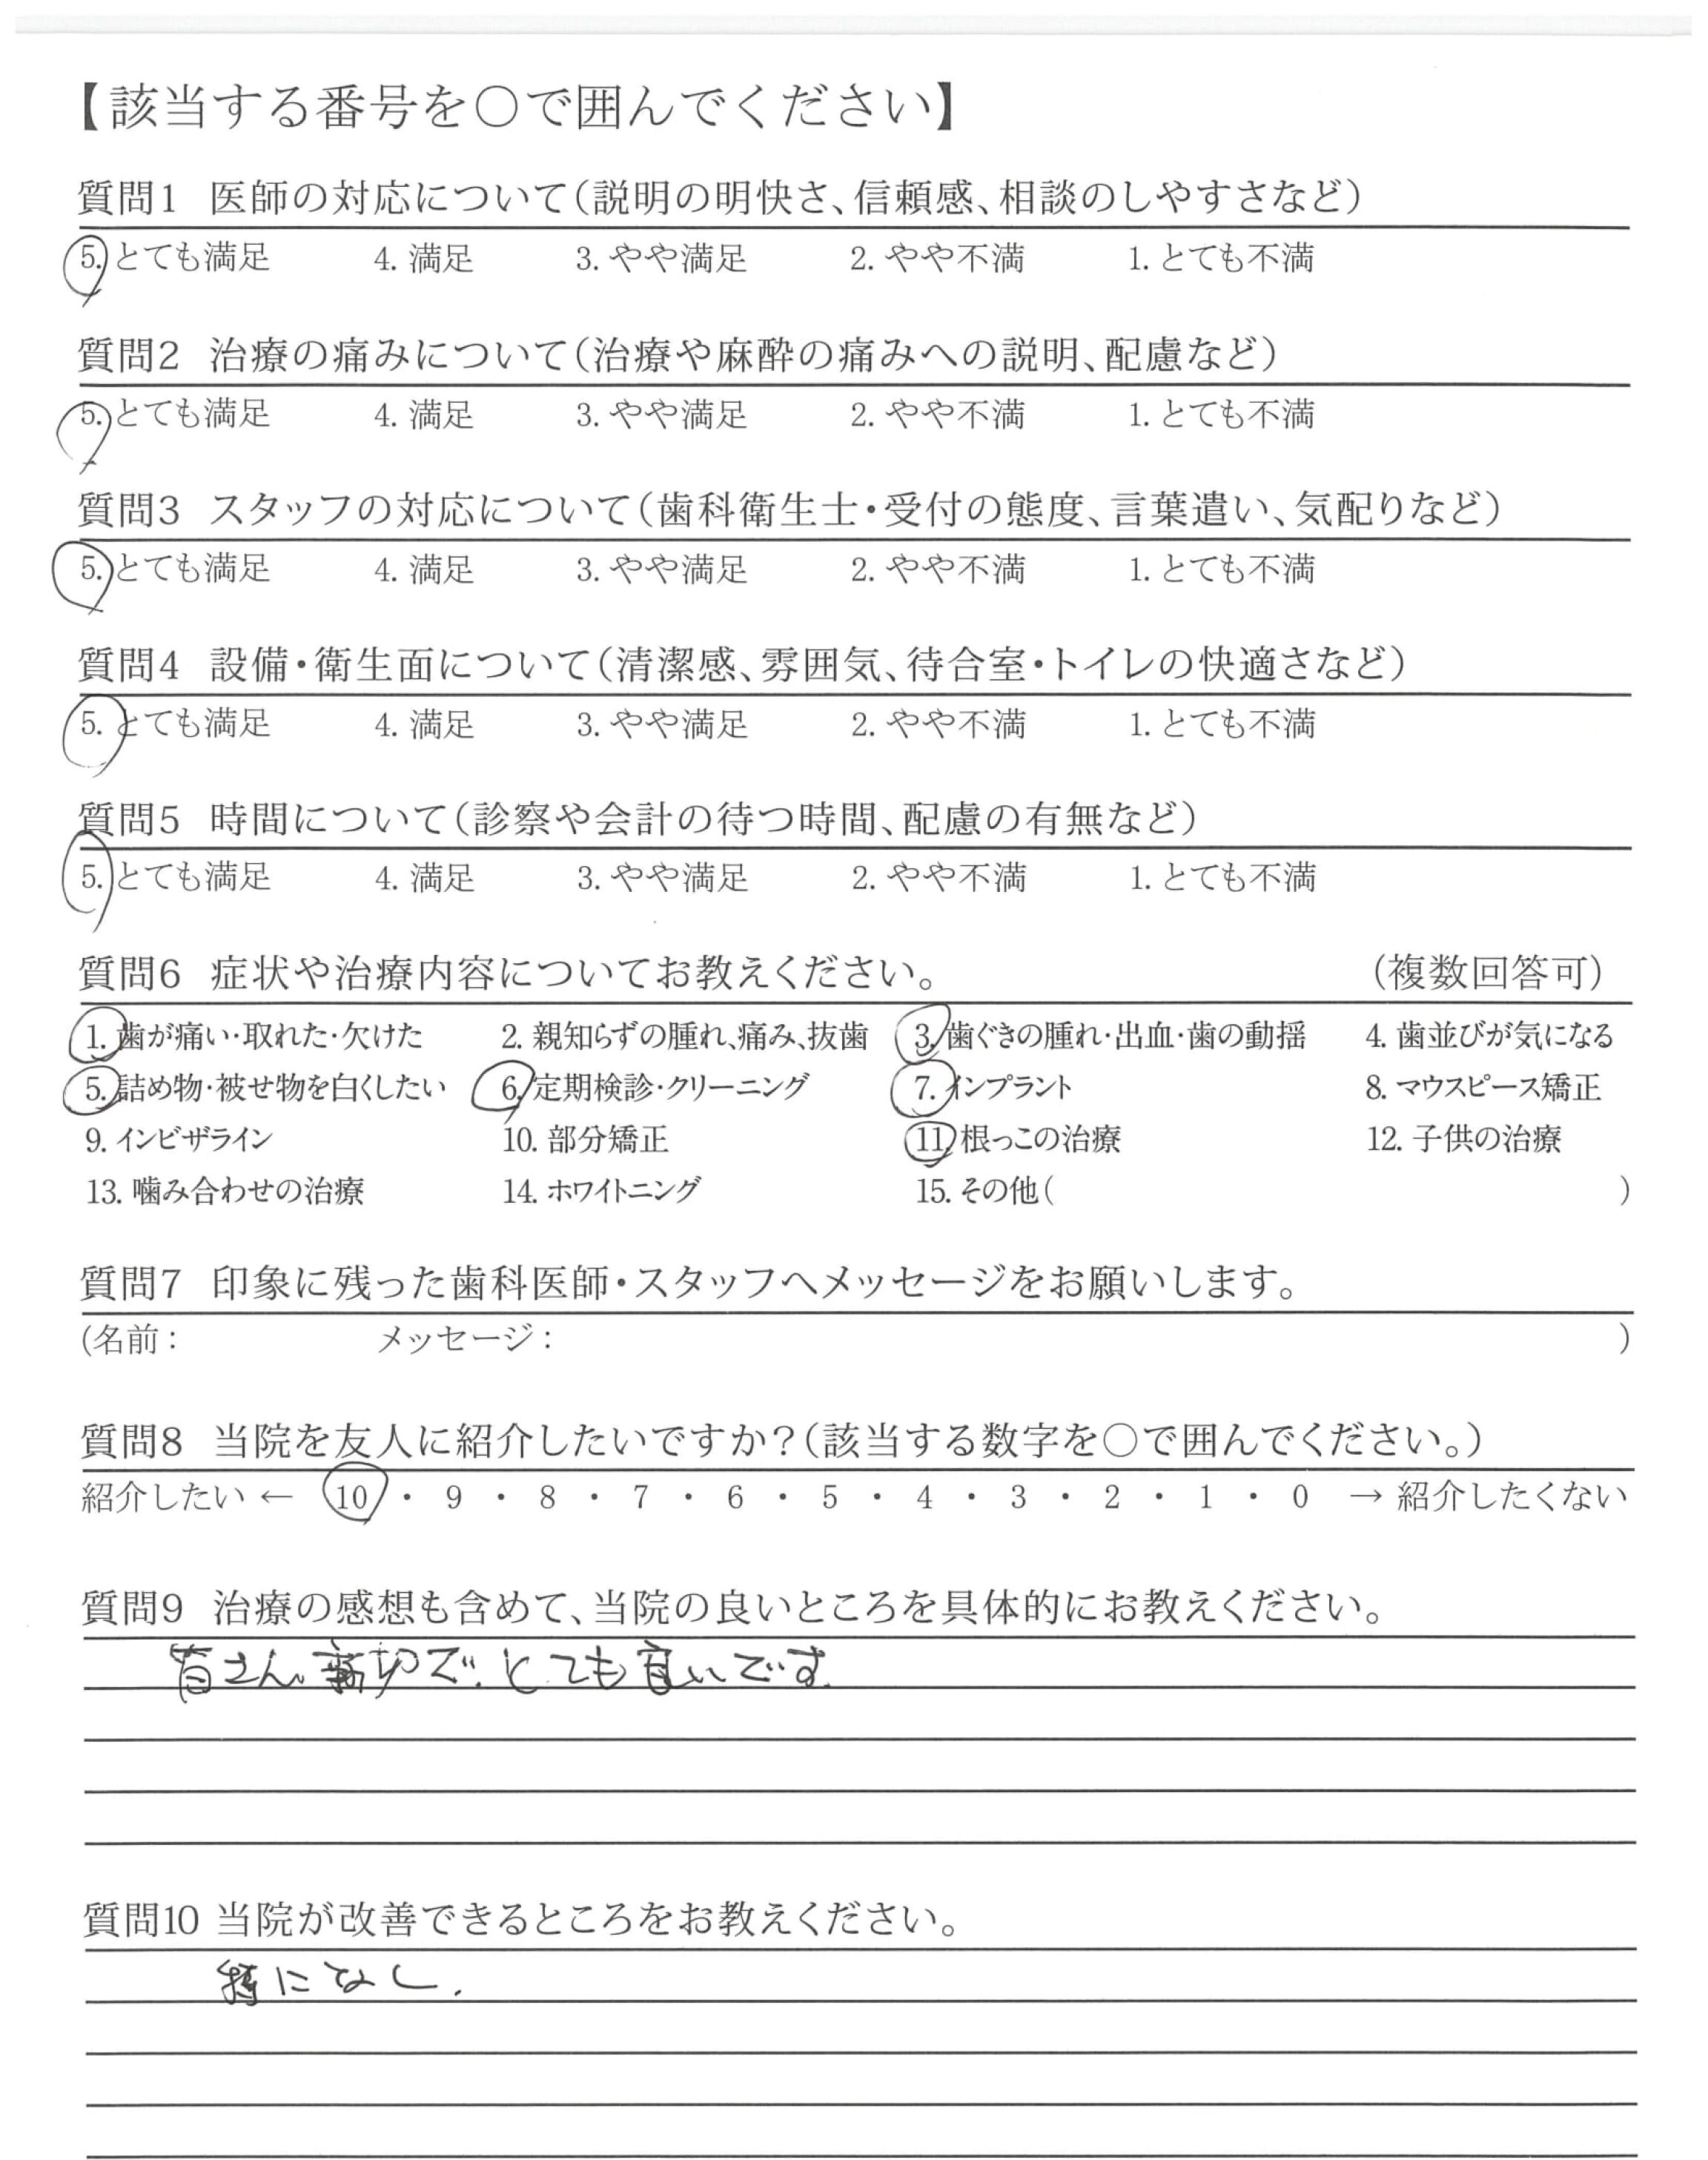 【該当する番号を〇で囲んでください】
質問1 医師の対応について(説明の明快さ、信頼感、相談のしやすさなど)
5. とても満足 4. 満足 3. やや満足 2. やや不満 1. とても不満
質問2 治療の痛みについて(治療や麻酔の痛みへの説明、配慮など)
5. とても満足 4. 満足 3. やや満足 2. やや不満 1. とても不満
質問3 スタッフの対応について(歯科衛生士・受付の態度、言葉遣い、気配りなど)
5. とても満足 4. 満足 3. やや満足 2. やや不満 1. とても不満
質問4 設備・衛生面について(清潔感、雰囲気、待合室・トイレの快適さなど)
5. とても満足 4. 満足 3. やや満足 2. やや不満 1. とても不満
質問5 時間について(診察や会計の待つ時間、配慮の有無など)
5. とても満足 4. 満足 3. やや満足 2. やや不満 1. とても不満
質問6 症状や治療内容についてお教えください。 (複数回答可)
1. 歯が痛い・取れた・欠けた 2. 親知らずの腫れ、痛み、抜歯 3. 歯ぐきの腫れ・出血・歯の動揺 4. 歯並びが気になる
5. 詰め物・被せ物を白くしたい 6. 定期検診・クリーニング 7. インプラント 8. マウスピース矯正
9. インビザライン 10. 部分矯正 11. 根っこの治療 12. 子供の治療
13. 噛み合わせの治療 14. ホワイトニング 15. その他( )
質問7 印象に残った歯科医師・スタッフへメッセージをお願いします。
(名前: メッセージ: )
質問8 当院を友人に紹介したいですか?(該当する数字を〇で囲んでください。)
紹介したい ← 10 ・ 9 ・ 8 ・ 7 ・ 6 ・ 5 ・ 4 ・ 3 ・ 2 ・ 1 ・ 0 → 紹介したくない
質問9 治療の感想も含めて、当院の良いところを具体的にお教えください。
皆さん親切で、とても良いです。
質問10 当院が改善できるところをお教えください。
特になし.